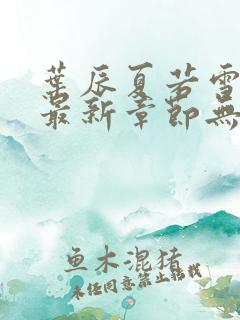 葉辰夏若雪
最新章節無
魚木混猪
未經同意禁止轉載